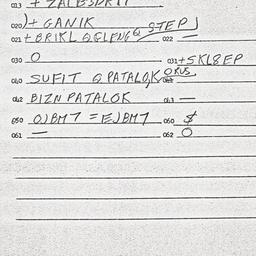 020) + GANIK
021 + BRIKL G.GLENG G STEP)
022 —
030 O
031 + SKL8EP
040 SUFIT G PATALOK OKUS
042 BIZN PATALOK 043 —
050 OJBM7 = EJBM7 060 $
061 — 062 O